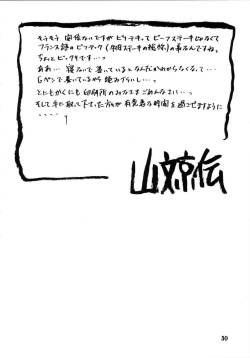 そもそも関係ないですがビフテキってビーフステーキじゃなくて
フランス語のビフテック(牛肉ステーキの総称)の事なんですね。
ちょっとビックリです…っ
ああ… 寝ないで書いているとなんだかわからなくなって…
Gペンで書いているから絶みづらいし…
とにもかくにも印刷所のみなさまごめんなさい…っ
そして手に取って下さった方が有意義な時間を過ごせますように
山文京伝
30